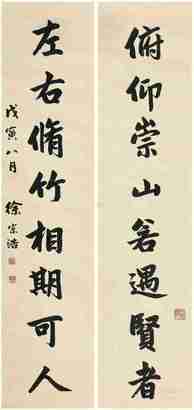 俯仰崇山若遇賢者
左右脩竹相期可人
戊寅八月
徐宗浩